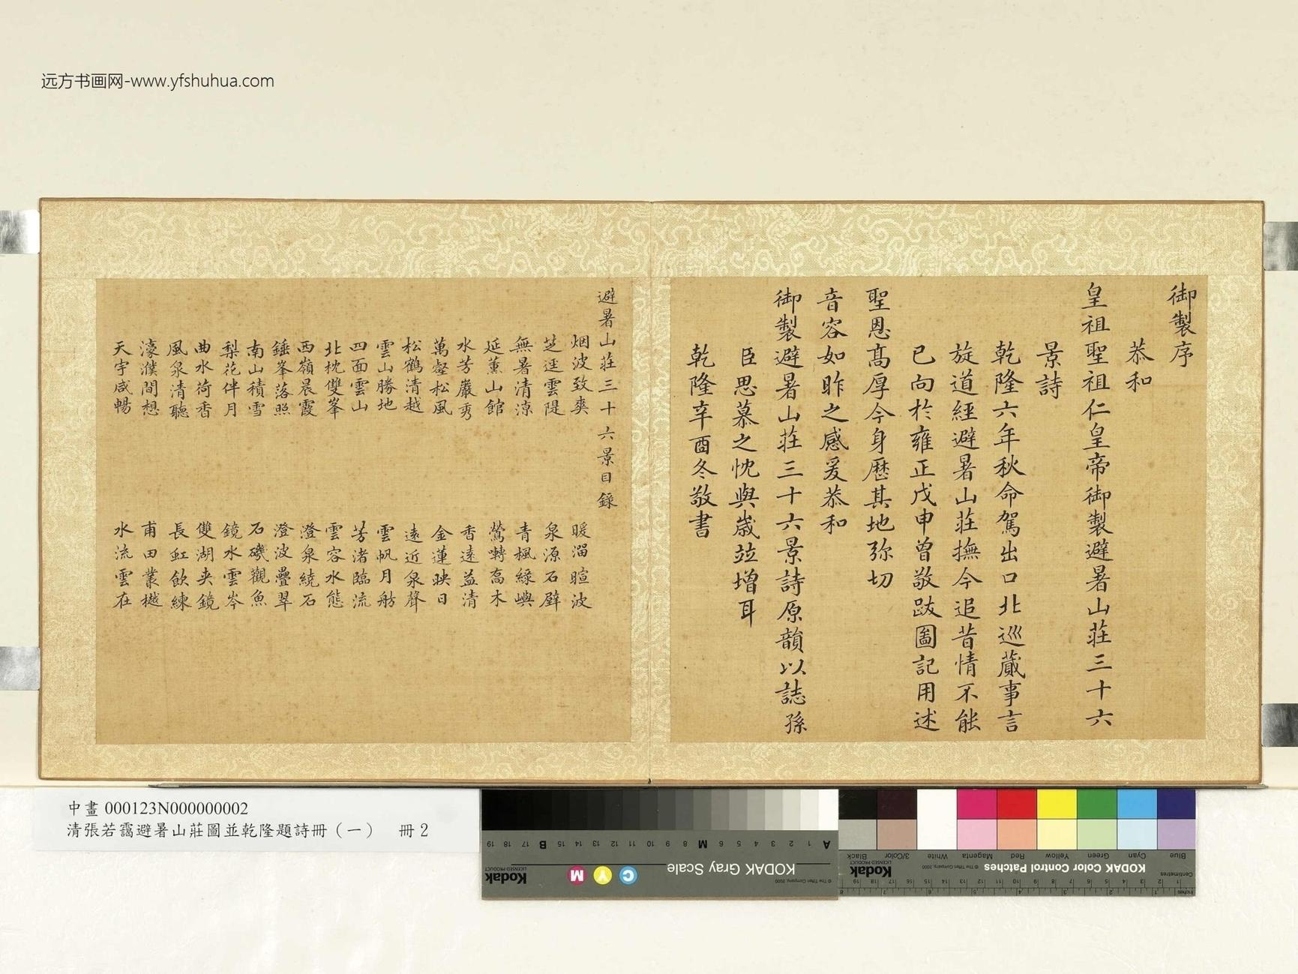 远方书画网-www.yfshuhua.com
御製序
恭和
皇祖聖祖仁皇帝御製避暑山莊三十六
景詩
乾隆六年秋命駕出口北巡蕆事言
旋道經避暑山莊撫今追昔情不能
已向於雍正戊申曾敬跋圖記用述
聖恩髙厚今身歷其地弥切
音容如昨之感爰恭和
御製避暑山莊三十六景詩原韻以誌孫
臣思慕之忱與嵗竝增耳
乾隆辛酉冬敬書
避暑山莊三十六景目録
烟波致爽 暖溜暄波
芝逕雲隄 泉源石壁
無暑清涼 青楓緑嶼
延薰山館 鶯囀喬木
水芳巖秀 香遠益清
萬壑松風 金蓮映日
松鶴清越 遠近泉聲
雲山勝地 雲帆月舫
四面雲山 芳渚臨流
北枕雙峯 雲容水態
西嶺晨霞 澄泉繞石
錘峯落照 澄波疊翠
南山積雪 石磯觀魚
梨花伴月 鏡水雲岑
曲水荷香 雙湖夹鏡
風泉清聽 長虹飲練
濠濮間想 甫田叢樾
天宇咸暢 水流雲在
中畫 000123N000000002
清張若靄避暑山莊圖並乾隆題詩冊（一） 冊 2
KODAK Gray Scale
Kodak
LICENSED PRODUCT
C Y M
A 1 2 3 4 5 6 M 8 9 10 11 12 13 14 15 B 17 18 19
KODAK Color Control Patches
Kodak
LICENSED PRODUCT
Blue Cyan Green Yellow Red Magenta White 3/Color Black
Centimetres
Inches